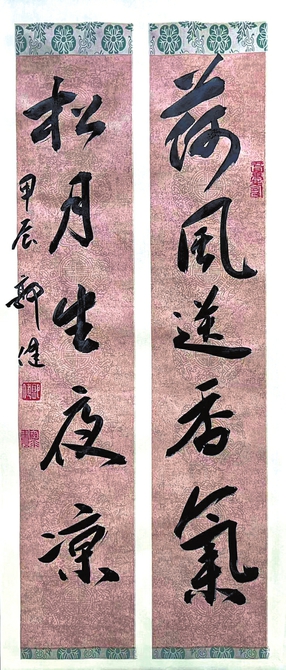 荷風送香氣
松月生夜凉
甲辰